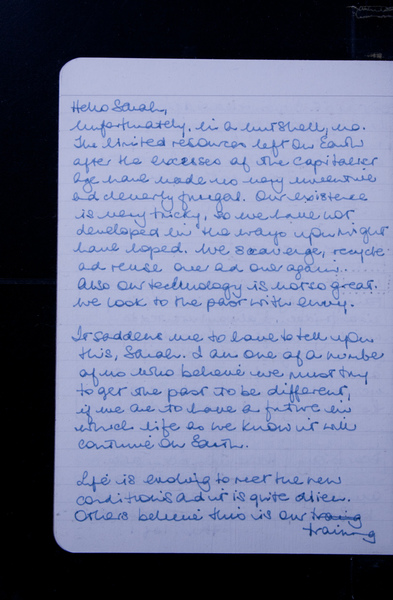 Hello Sarah,
Unfortunately, in a nutshell, no.
The limited resources left on Earth
after the excesses of the Capitalist
Age have made us very inventive
and cleverly frugal. Our existence
is very tricky, so we have not
developed in the ways you might
have hoped. We scavenge, recycle
ad reuse over ad over again.
Also our technology is not so great.
We look to the past with envy.
It saddens me to have to tell you
this, Sarah. I am one of a number
of us who believe we must try
to get the past to be different,
if we are to have a future in
which life as we know it will
continue on Earth.
Life is evolving to meet the new
conditions ad it is quite
Others believe this is our
training